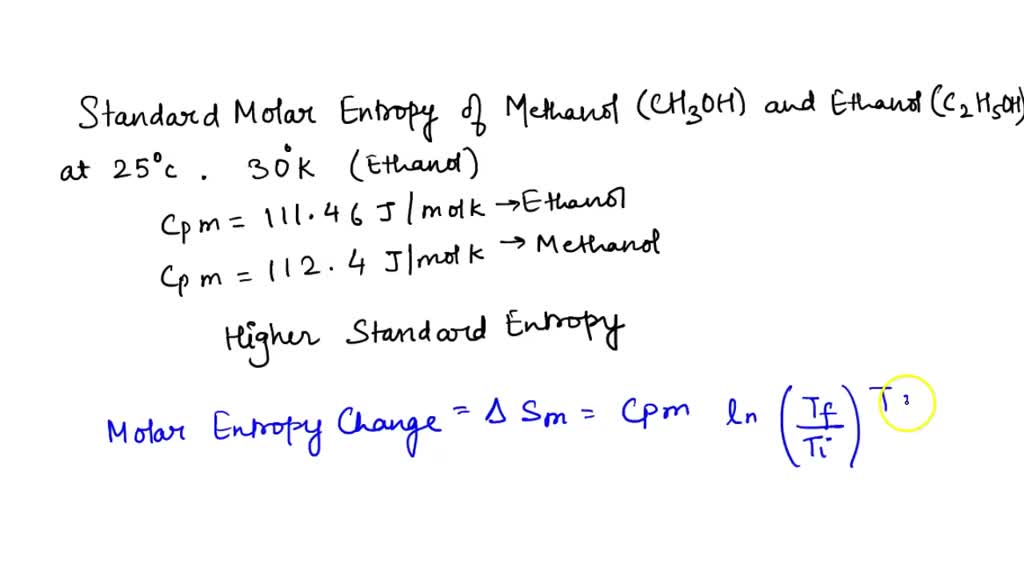 Standard Molar Entropy of Methanol (CH3OH) and Ethanol (C2H5OH)
at 25°C. 30°K (Ethanol)
Cpm = 111.46 J/molk → Ethanol
Cpm = 112.4 J/molk → Methanol
Higher Standard Entropy
Molar Entropy Change = Δ Sm = Cpm ln (Tf/Ti) T